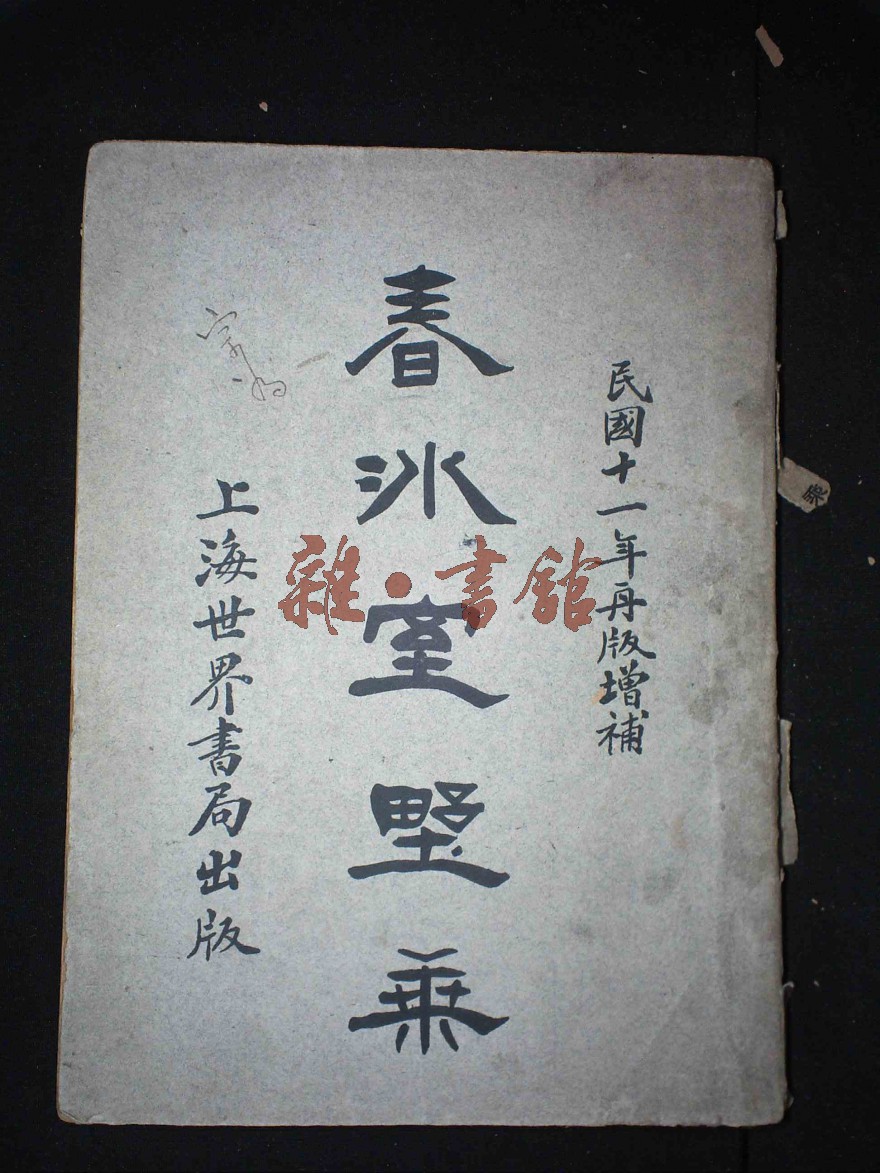 民國十一年再版增補
春冰室野乘
上海世界書局出版
雜·書館